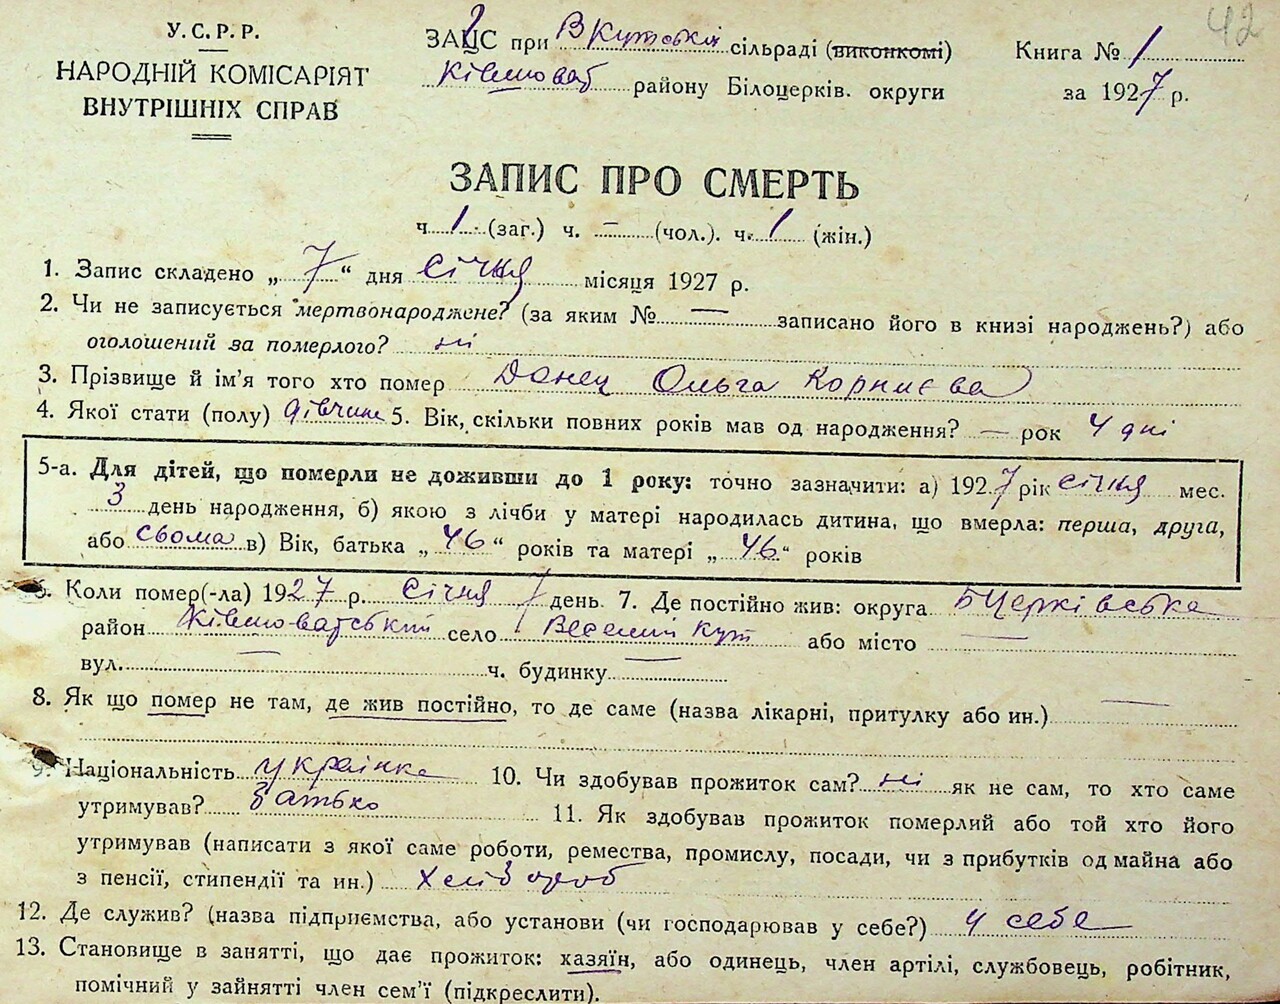 42
У.С.Р.Р.
НАРОДНІЙ КОМІСАРІЯТ
ВНУТРІШНІХ СПРАВ
ЗАГС при ВКутській сільраді (виконкомі)
Ківшоват району Білоцерків. округи
Книга № 1
за 1927 р.
ЗАПИС ПРО СМЕРТЬ
ч 1 (заг.) ч. — (чол.). ч. 1 (жін.)
1. Запис складено „ 7 “ дня січня місяця 1927 р.
2. Чи не записується мертвонароджене? (за яким № — записано його в книзі народжень?) або
оголошений за померлого? ні
3. Прізвище й ім'я того хто помер Донец Ольга Корниєва
4. Якої стати (полу) дівчина 5. Вік, скільки повних років мав од народження? — рок 4 дні
5-а. Для дітей, що померли не доживши до 1 року: точно зазначити: а) 1927 рік січня мес.
3 день народження, б) якою з лічби у матері народилась дитина, що вмерла: перша, друга,
або сьома в) Вік, батька „ 46 “ років та матері „ 46 “ років
6. Коли помер(-ла) 1927 р. січня 7 день. 7. Де постійно жив: округа БЦерківська
район Ківшоватський село Веселий Кут або місто —
вул. — ч. будинку —
8. Як що помер не там, де жив постійно, то де саме (назва лікарні, притулку або ин.) —
9. Національність українка 10. Чи здобував прожиток сам? ні як не сам, то хто саме
утримував? батько 11. Як здобував прожиток померлий або той хто його
утримував (написати з якої саме роботи, ремества, промислу, посади, чи з прибутків од майна або
з пенсії, стипендії та ин.) Хлібороб
12. Де служив? (назва підприємства, або установи (чи господарював у себе?) у себе
13. Становище в занятті, що дає прожиток: хазяїн, або одинець, член артілі, службовець, робітник,
помічний у зайнятті член сем'ї (підкреслити).